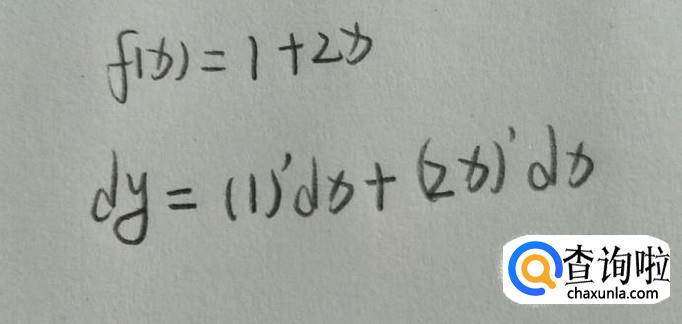 f(x) = 1 + 2x
dy = (1)'dx + (2x)'dx
查询啦
chaxunla.com